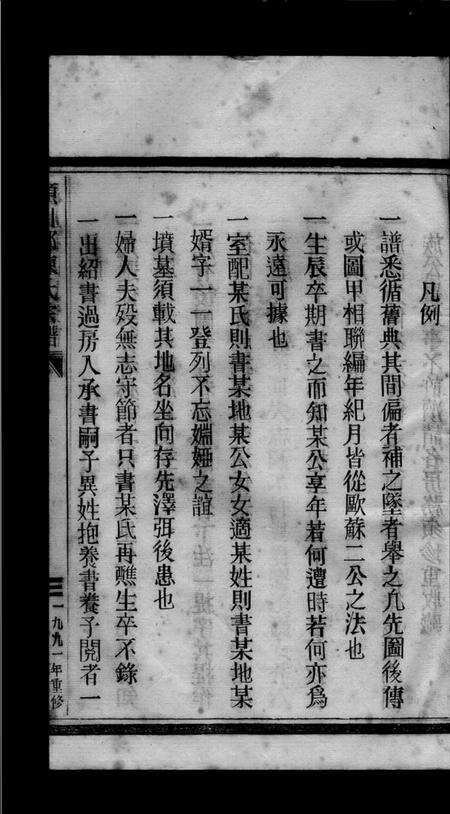 凡例
一譜悉循舊典其間偏者補之墜者舉之凢先圖後傳
或圖甲相聯編年紀月皆從歐蘇二公之法也
一生辰卒期書之而知某公享年若何遭時若何亦爲
永遠可據也
一室配某氏則書某地某公女女適某姓則書某地某
婿字一一登列不忘婣婭之誼
一墳墓須載其地名坐向存先澤弭後患也
一婦人夫殁無志守節者只書某氏再醮生卒不錄
一出紹書過房入承書嗣子異姓抱養書養子閱者一
氏宗譜
一九九一年重修